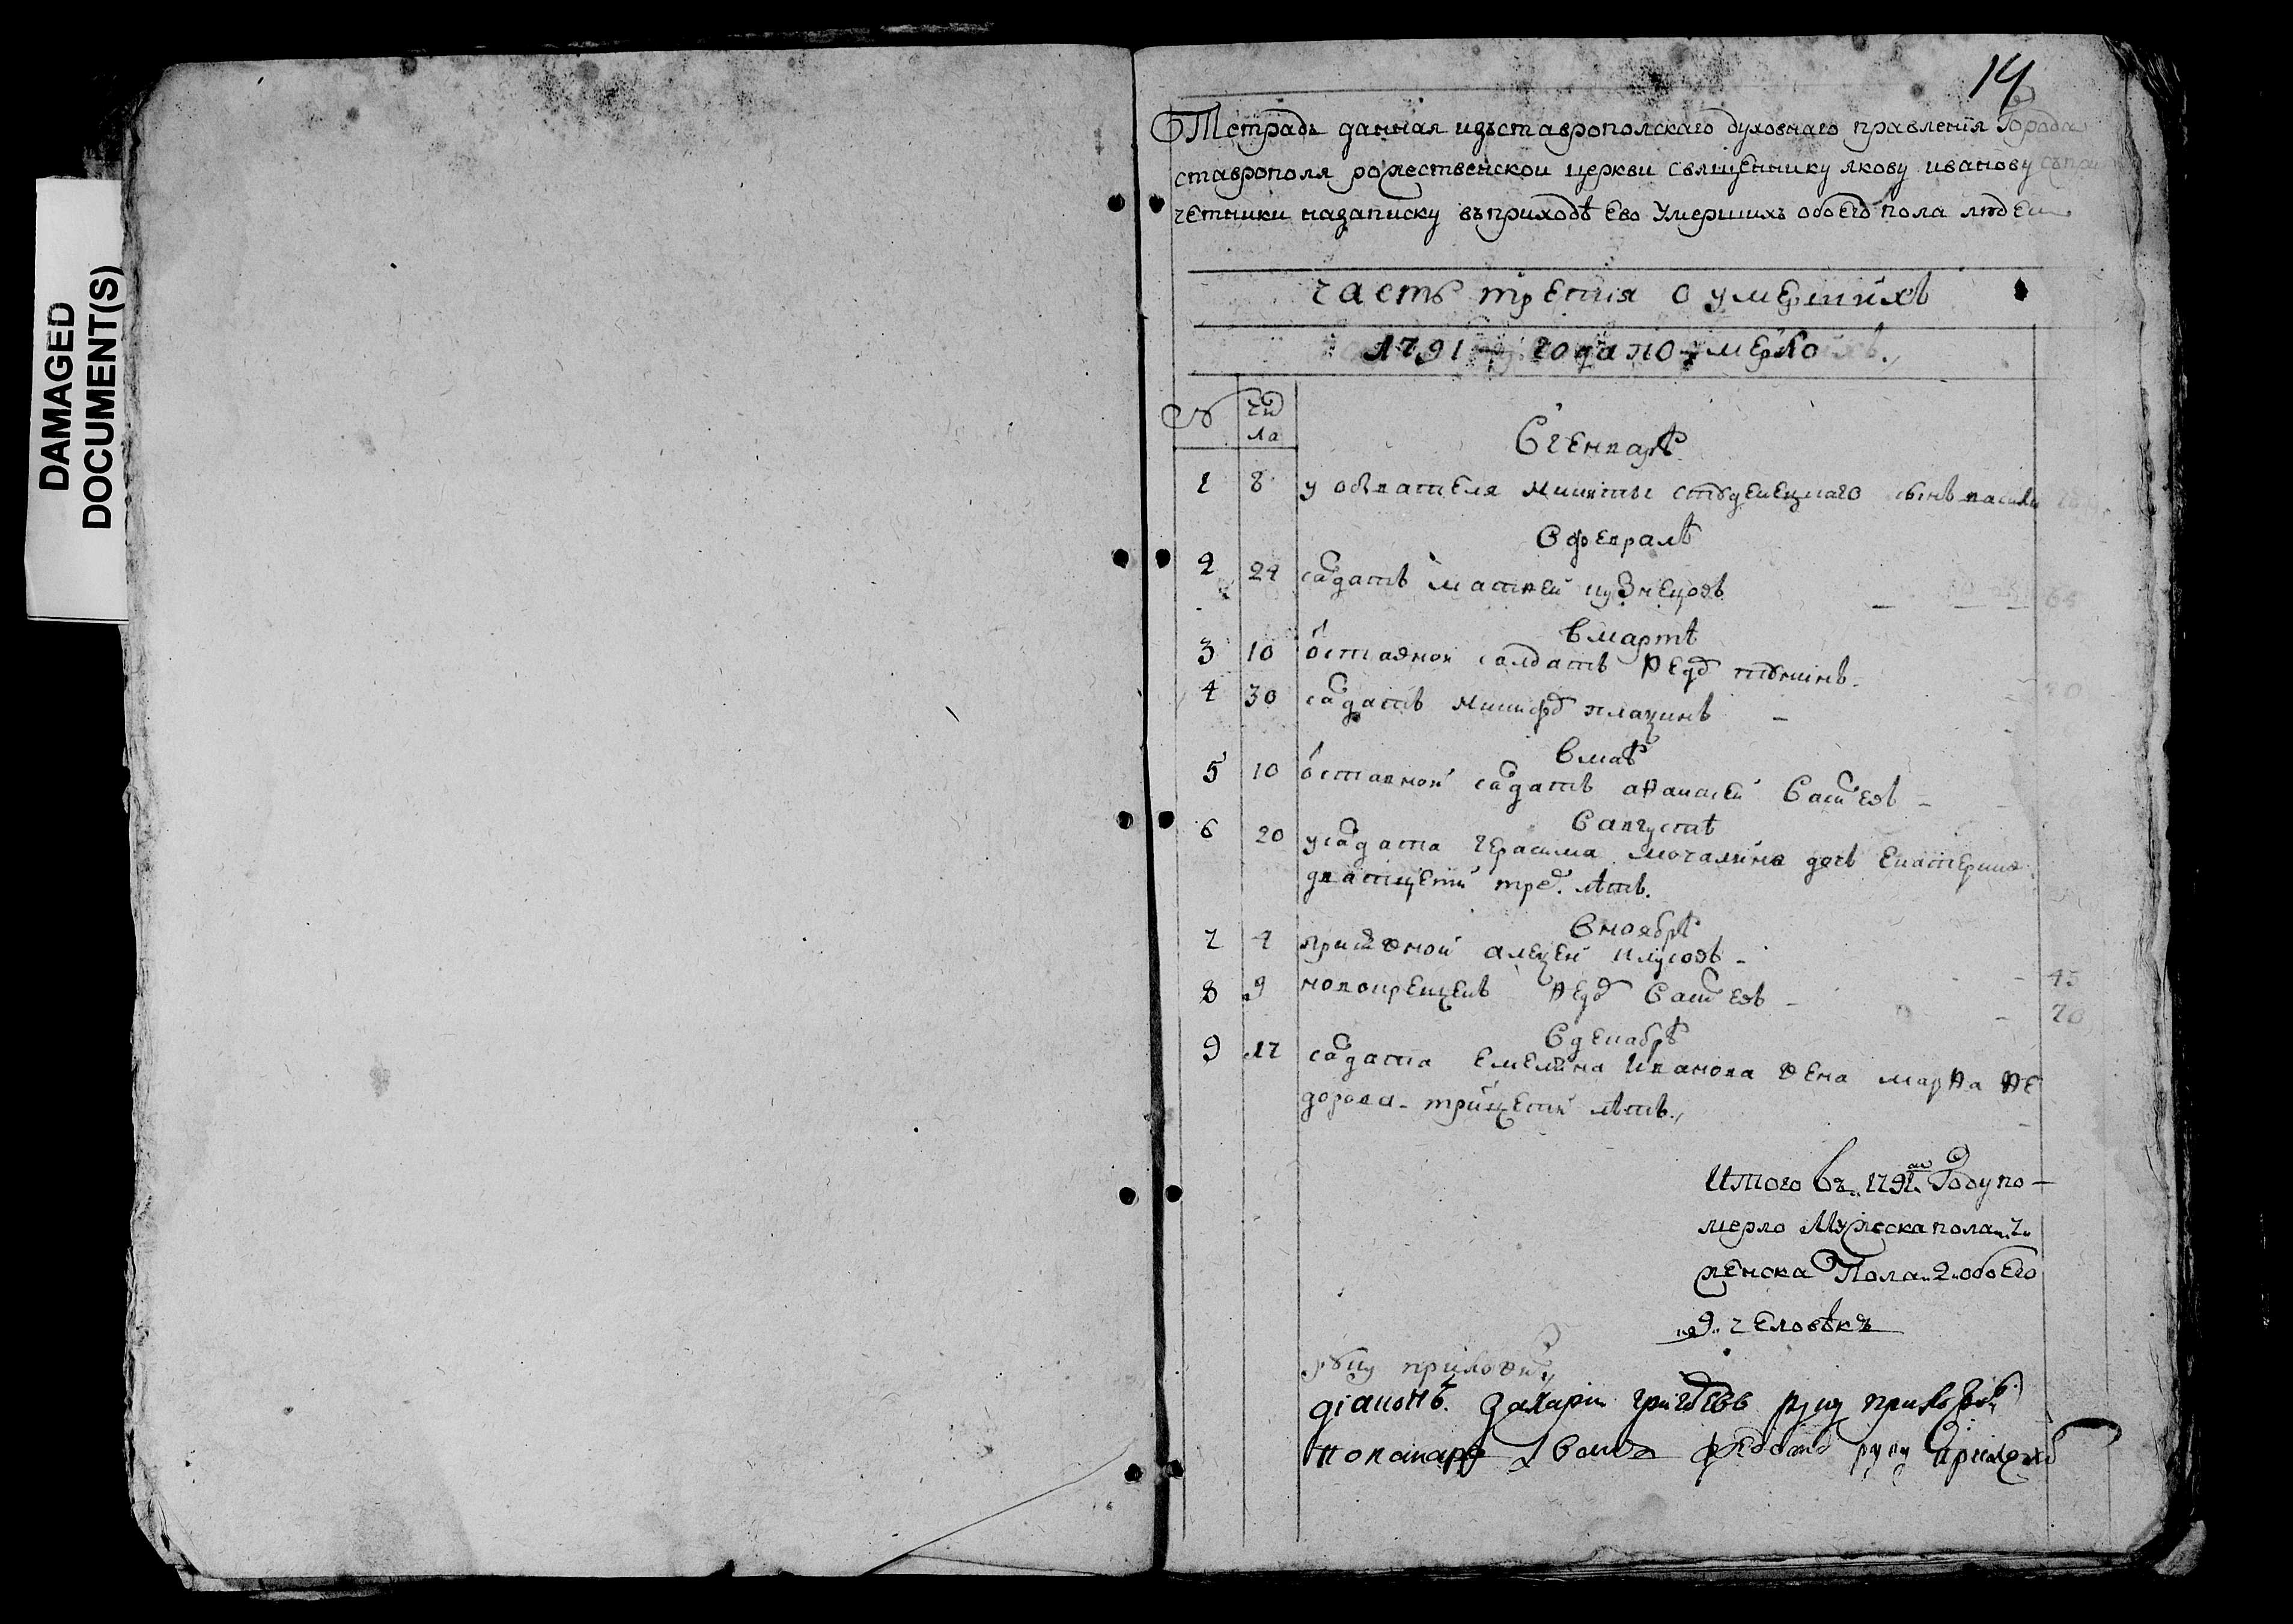 DAMAGED
DOCUMENT(S)
14
Тетрадь данная изъставрополскаго духовнаго правления Города
ставрополя рожественской церкви священнику якову иванову
четники назаписку въприходѣ Ево Умершихъ обоего пола людеи
часть третия о умершихъ
1791 года померло
№ числа
Вгенварѣ
1 8 у обывателя никиты студенецкаго сынъ васили
Вфевралѣ
2 24 садатъ матвей кузнецовъ
вмартѣ
3 10 отставной салдатъ Ѳедор
4 30 садатъ никифор
вмаѣ
5 10 отставной садатъ аѳанасей
Вавгустѣ
6 20 усадата герасима мочалина дочь Екатерина
дватцети трех лѣтъ.
Вноябрѣ
7 4 алексей 45
8 9 новокрещенъ Ѳедор 70
Вдекабрѣ
9 17 садата Емельяна Иванова жена марѳа Ѳе
дорова тритцети лѣтъ.
Итого въ 1791м Году по-
мерло Мужеска пола 7
женска Пола 2 обоего
9 человѣкъ
руку приложил
діаконъ Захарии григорьевъ руку приложил
пономарь руку приложил